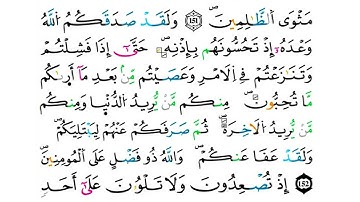 مَثْوَى الظَّالِمِينَ ۝١٥١ وَلَقَدْ صَدَقَكُمُ اللَّهُ
وَعْدَهُ إِذْ تَحُسُّونَهُم بِإِذْنِهِ حَتَّىٰ إِذَا فَشِلْتُمْ
وَتَنَازَعْتُمْ فِي الْأَمْرِ وَعَصَيْتُم مِّن بَعْدِ مَا أَرَاكُم
مَّا تُحِبُّونَ مِنكُم مَّن يُرِيدُ الدُّنْيَا وَمِنكُم
مَّن يُرِيدُ الْآخِرَةَ ثُمَّ صَرَفَكُمْ عَنْهُمْ لِيَبْتَلِيَكُمْ
وَلَقَدْ عَفَا عَنكُمْ وَاللَّهُ ذُو فَضْلٍ عَلَى الْمُؤْمِنِينَ
۝١٥٢ إِذْ تُصْعِدُونَ وَلَا تَلْوُونَ عَلَىٰ أَحَدٍ